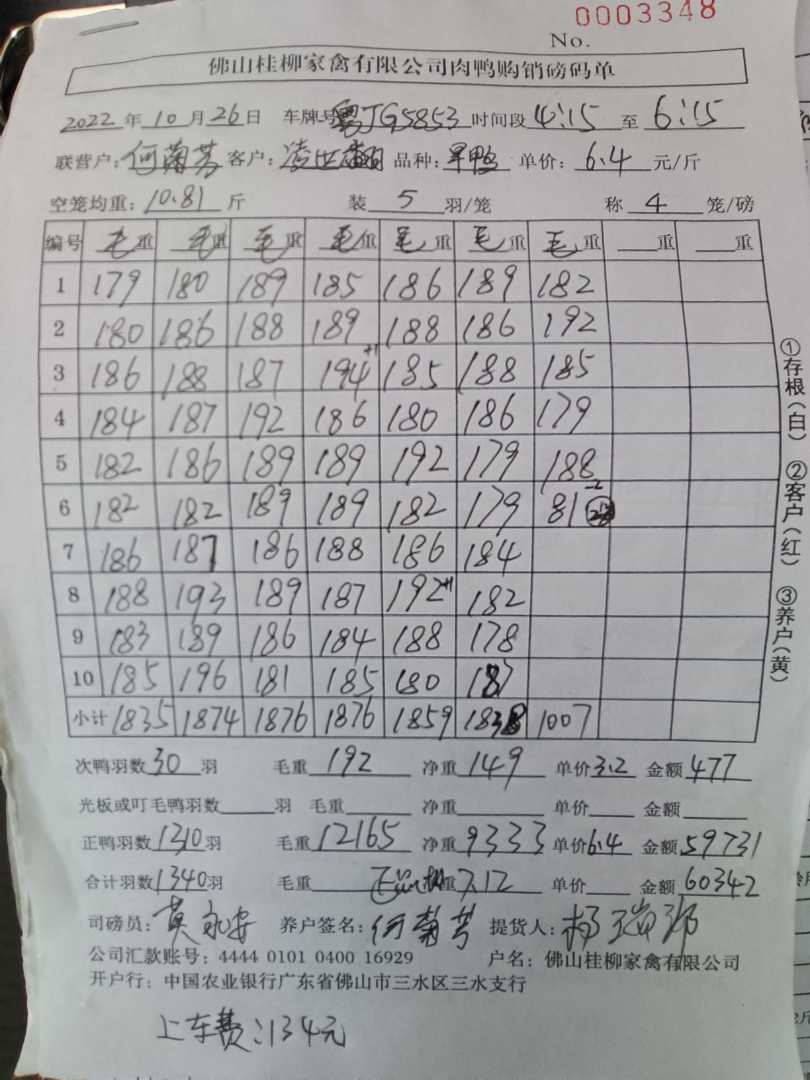 0003348
No.
佛山桂柳家禽有限公司肉鸭购销磅码单
2022年10月26日 车牌号粤JG5853 时间段4:15至6:15
联营户:何菊芳 客户: 品种:旱鸭 单价:6.4元/斤
空笼均重:10.81斤 装5羽/笼 称4笼/磅
编号 毛重 毛重 毛重 毛重 毛重 毛重 毛重 重 重
1 179 180 189 185 186 189 182
2 180 186 188 189 188 186 192
3 186 188 187 194+1 185 188 185
4 184 187 192 186 180 186 179
5 182 186 189 189 192 179 188
6 182 182 189 189 182 179 81 -2
7 186 187 186 188 186 184
8 188 193 189 187 192+1 182
9 183 189 186 184 188 178
10 185 196 181 185 180 187
小计 1835 1874 1876 1876 1859 1838 1007
次鸭羽数30羽 毛重192 净重149 单价3.2 金额477
光板或叮毛鸭羽数 羽 毛重 净重 单价 金额
正鸭羽数1310羽 毛重12165 净重9333 单价6.4 金额59731
合计羽数1340羽 毛重 重7.12 单价 金额60342
司磅员:莫永安 养户签名:何菊芳 提货人:杨
公司汇款账号:4444 0101 0400 16929 户名:佛山桂柳家禽有限公司
开户行:中国农业银行广东省佛山市三水区三水支行
上车费:134元
①存根(白) ②客户(红) ③养户(黄)